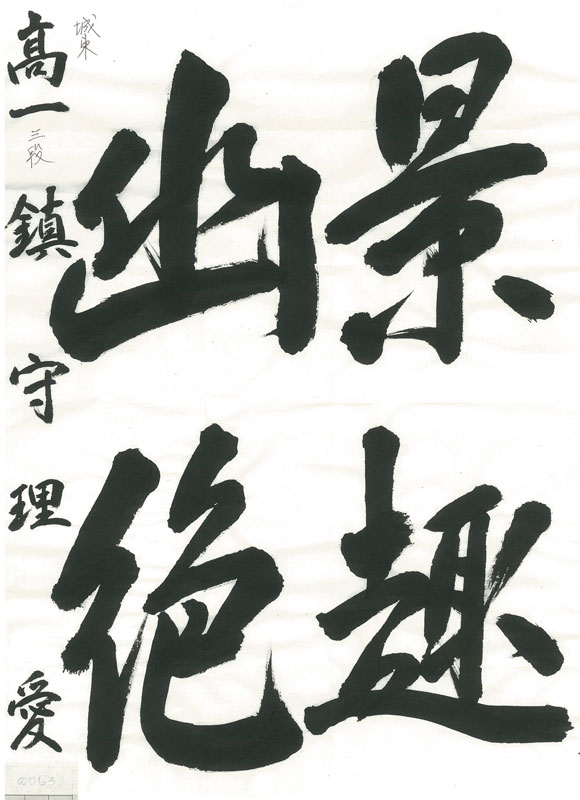 景趣
幽絶
城東
高一 三段 鎮守理愛
のりしろ